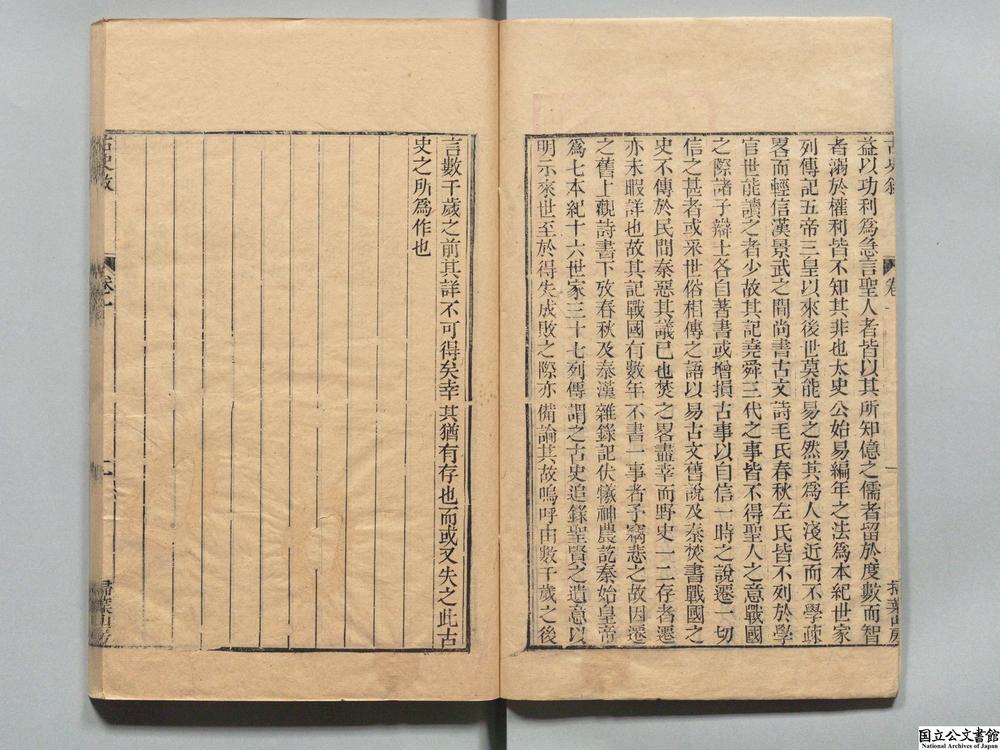 益以功利爲急言聖人者皆以其所知億之儒者留於度數而智
者溺於權利皆不知其非也太史公始易編年之法爲本紀世家
列傳記五帝三皇以來後世莫能易之然其爲人淺近而不學疎
畧而輕信漢景武之間尚書古文詩毛氏春秋左氏皆不列於學
官世能讀之者少故其記堯舜三代之事皆不得聖人之意戰國
之際諸子辯士各自著書或增損古事以自信一時之說遷一切
信之甚者或采世俗相傳之語以易古文舊說及秦焚書戰國之
史不傳於民間秦惡其議已也焚之畧盡幸而野史一二存者遷
亦未暇詳也故其記戰國有數年不書一事者予竊悲之故因遷
之舊上觀詩書下攷春秋及秦漢雜錄記伏犧神農訖秦始皇帝
爲七本紀十六世家三十七列傳謂之古史追錄聖賢之遺意以
明示來世至於得失成敗之際亦備論其故嗚呼由數千歲之後
言數千歲之前其詳不可得矣幸其猶有存也而或又失之此古
史之所爲作也
古史敘
卷
掃葉山房
国立公文書館
National Archives of Japan